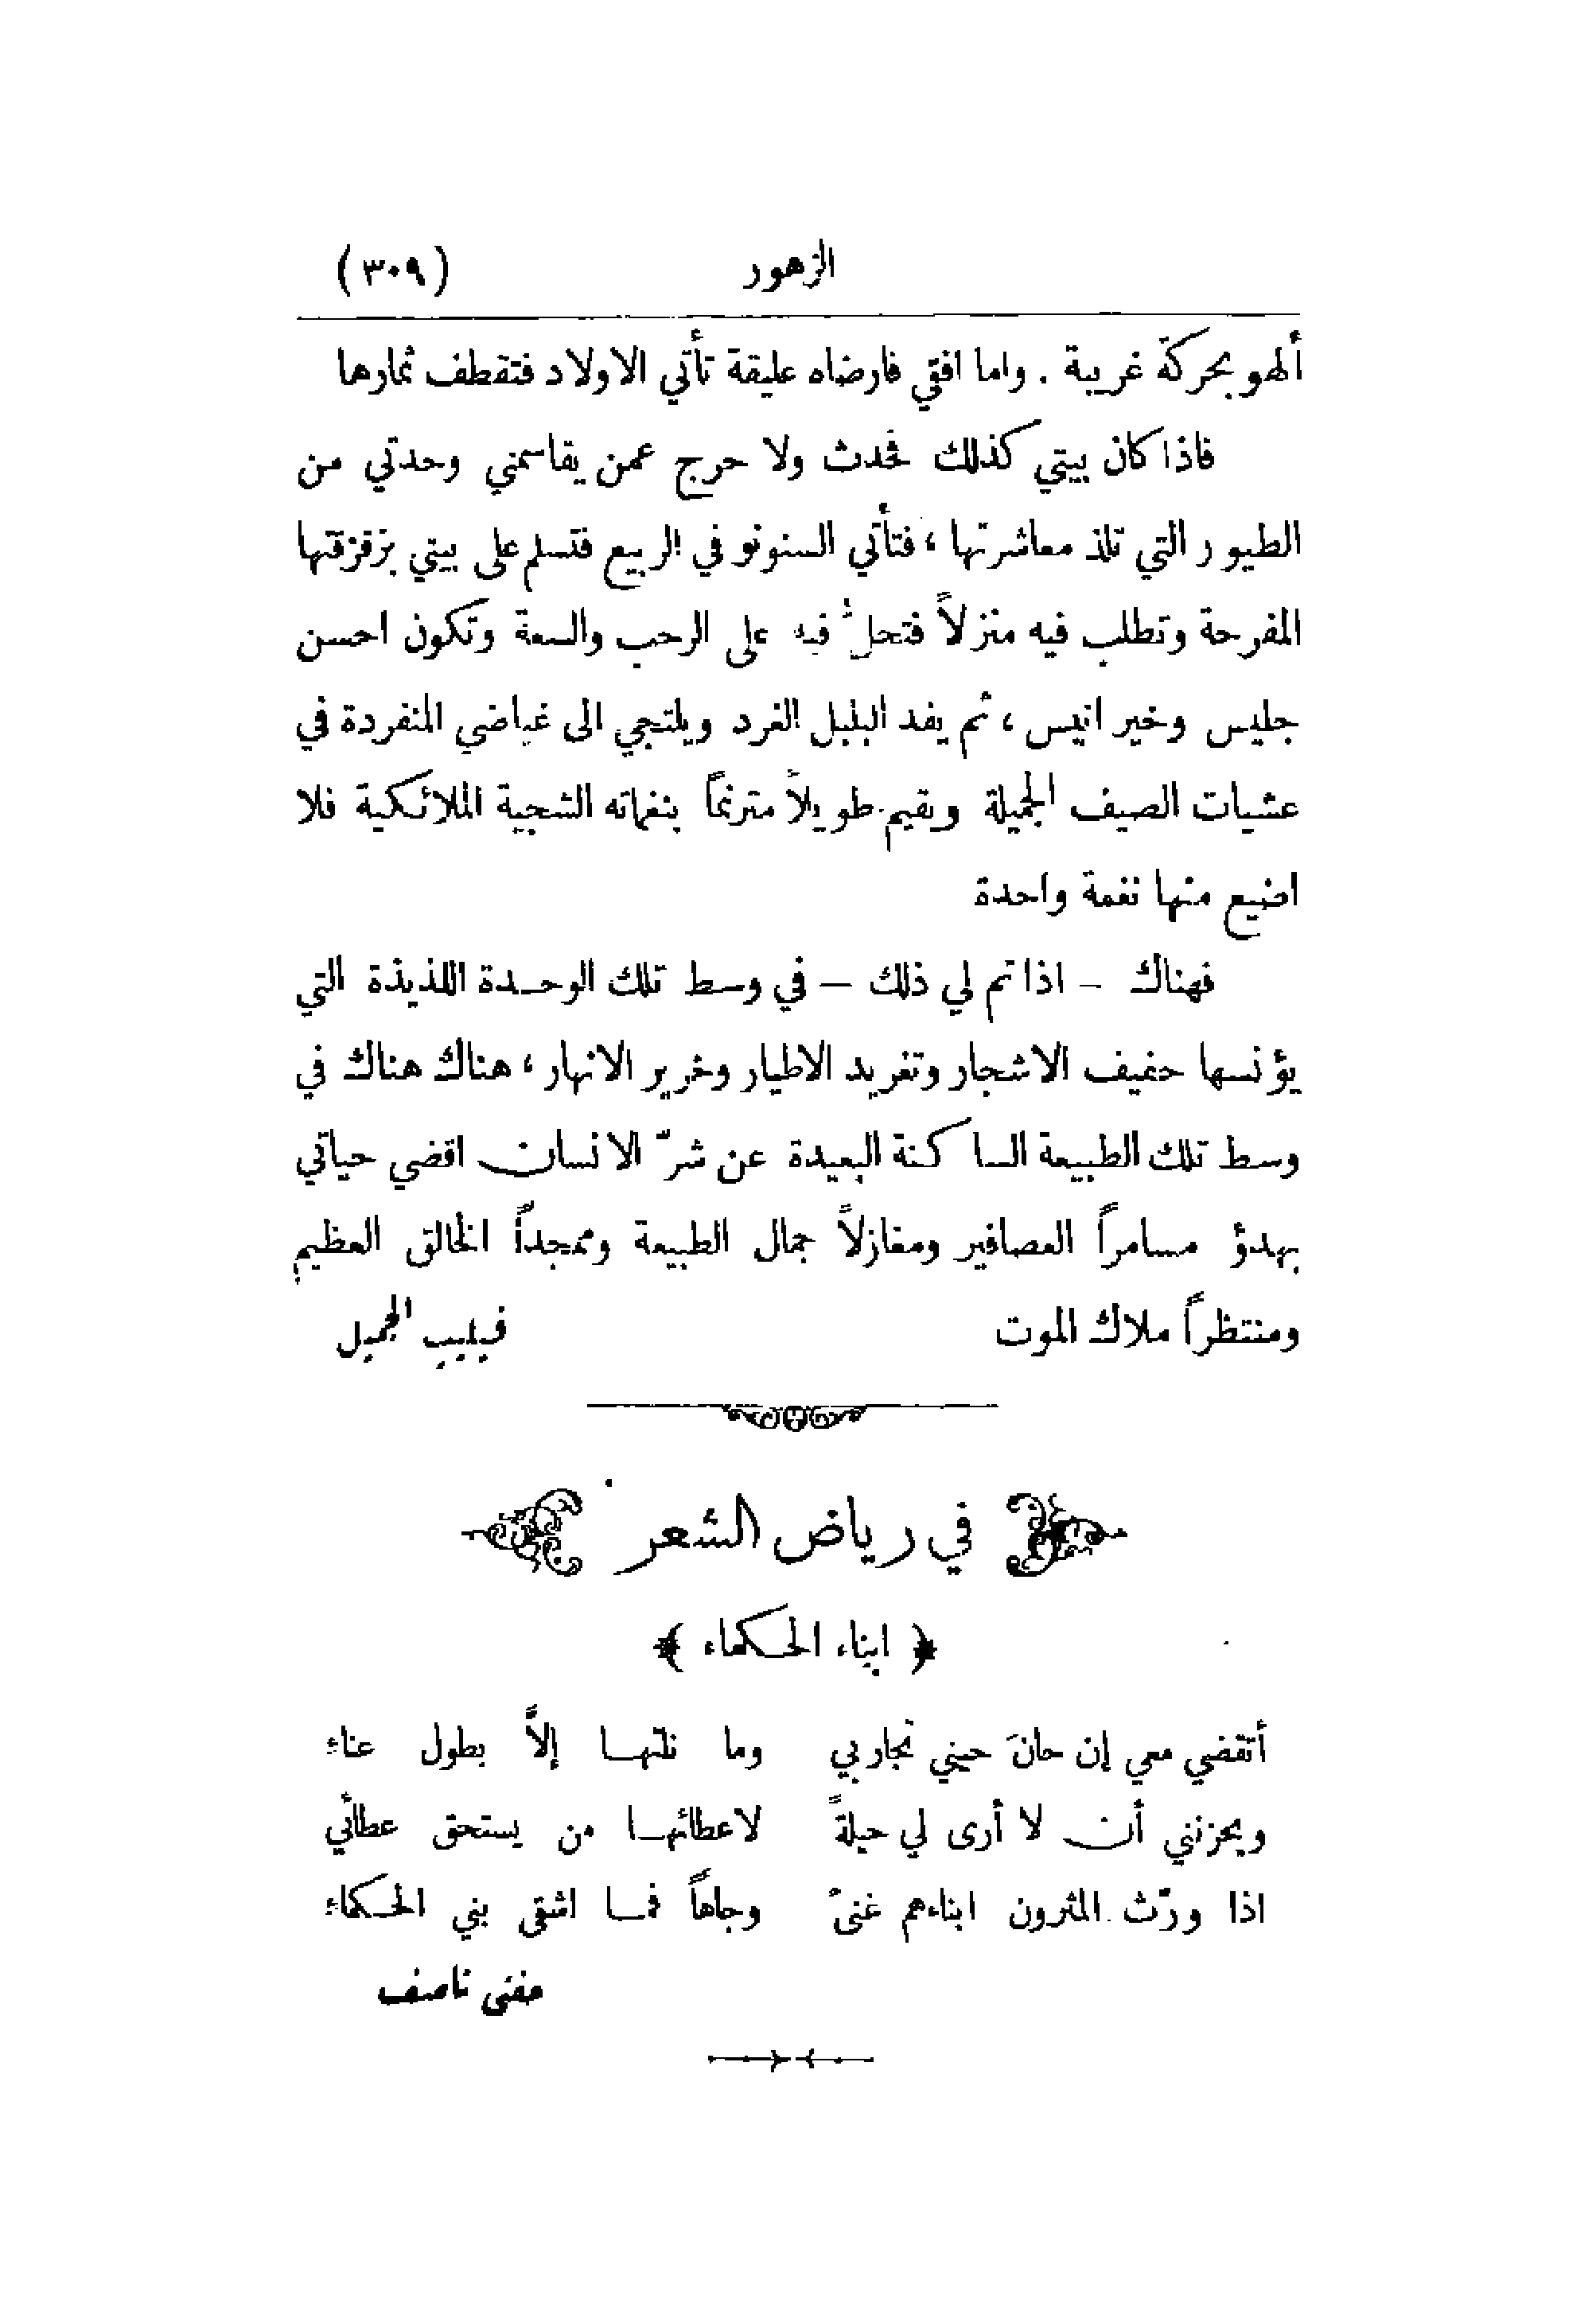 الزهور
(٣٠٩)
ألهو بحركة غريبة . واما افقي فارضاه عليقة تأتي الاولاد فتقطف ثمارها
فاذا كان بيتي كذلك فحدث ولا حرج عمن يقاسمني وحدتي من
الطيور التي تلذ معاشرتها ، فتأتي السنونو في الربيع فتسلم على بيتي بزقزقتها
المفرحة وتطلب فيه منزلاً فتحلُّ فيه على الرحب والسعة وتكون احسن
جليس وخير انيس ، ثم يفد البلبل الغرد ويلتجي الى غياضي المنفردة في
عشيات الصيف الجميلة ويقيم طويلاً مترنماً بنغماته الشجية الملائكية فلا
اضيع منها نغمة واحدة
فهناك - اذا تم لي ذلك - في وسط تلك الوحدة اللذيذة التي
يؤنسها حفيف الاشجار وتغريد الاطيار وخرير الانهار ، هناك هناك في
وسط تلك الطبيعة الساكنة البعيدة عن شرّ الانسان اقضي حياتي
بهدؤ مسامراً العصافير ومغازلاً جمال الطبيعة وممجداً الخالق العظيم
ومنتظراً ملاك الموت
فيليب الجميل
في رياض الشعر
﴿ ابناء الحكماء ﴾
أتقضي معي إن حانَ حيني تجاربي وما نلتها إلاَّ بطول عناء
ويحزنني أن لا أرى لي حيلةً لاعطائها من يستحق عطائي
اذا ورّث المثرون ابناءهم غنىً وجاهاً فما اشقى بني الحكماء
حفني ناصف